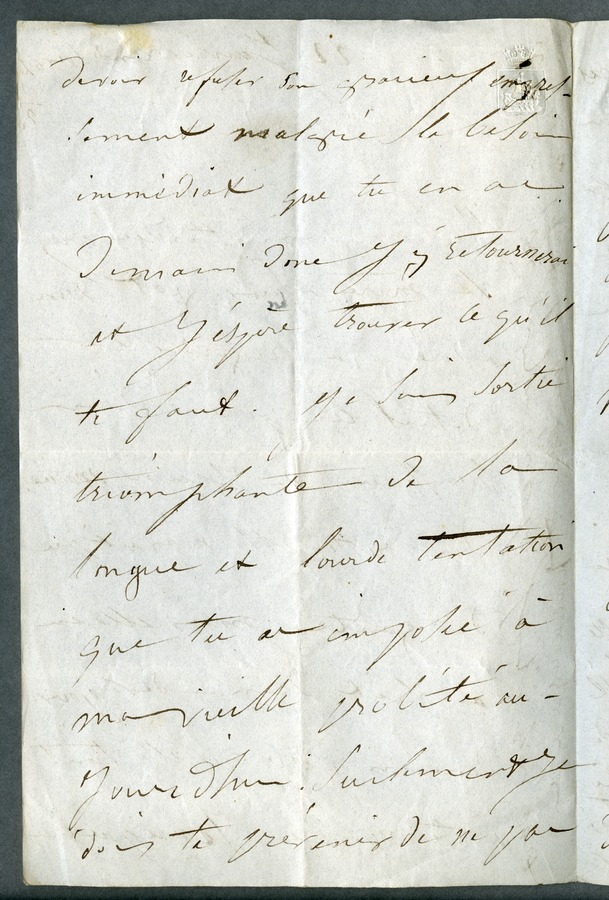 devoir refuser son gracieux empres-
sement malgré le besoin
immédiat que tu en as.
Demain donc j'y retournerai
et j'éspère trouver ce qu'il
te faut. Je suis sortie
triomphante de la
longue et lourde tentation
que tu as imposée à
ma vieille probité au-
jourd'hui. Seulement je
dois te prévenir de ne pas